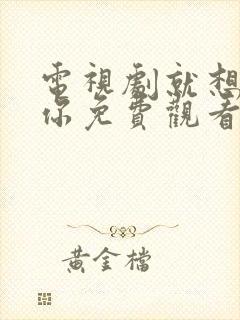 電視劇就想
你免費觀看
黃金檔